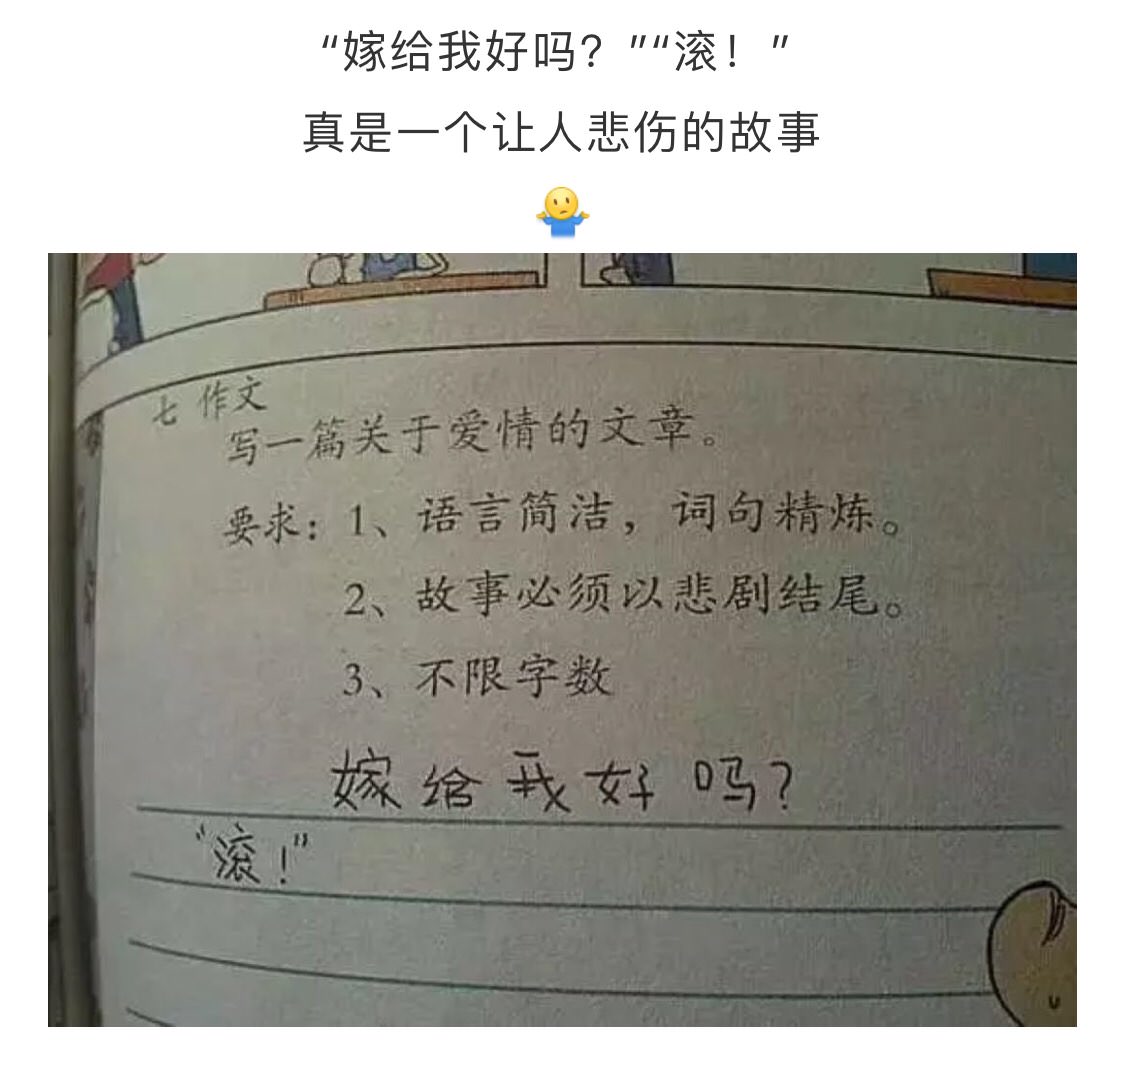 “嫁给我好吗？”“滚！”
真是一个让人悲伤的故事
七 作文
写一篇关于爱情的文章。
要求：1、语言简洁，词句精炼。
2、故事必须以悲剧结尾。
3、不限字数
嫁给我好吗?
“滚!”